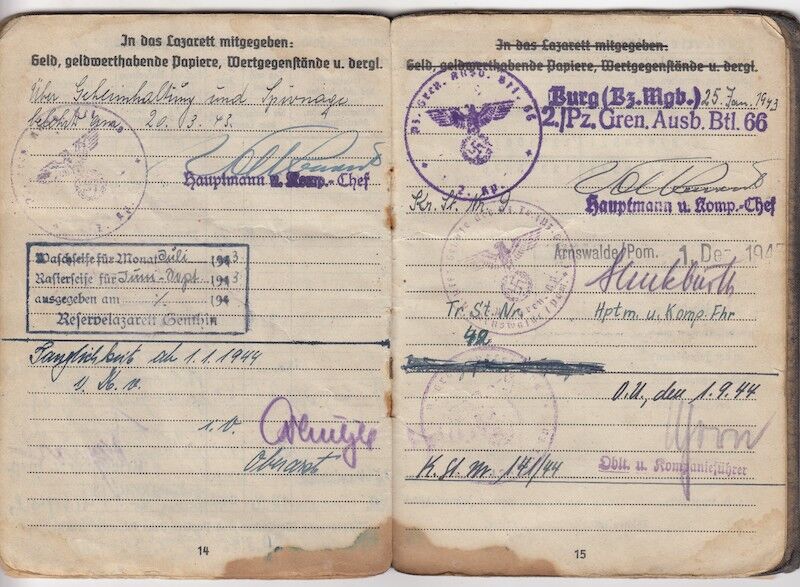 In das Lazarett mitgegeben:
Geld, geldwerthabende Papiere, Wertgegenstände u. dergl.
Über Geheimhaltung und Spionage
belehrt am 20.3.43.
Hauptmann u. Komp.-Chef
Waschseife für Monat Juli 1943.
Rasierseife für Juni-Sept 1943
ausgegeben am 1/. 194
Reservelazarett Genthin
Tauglichkeit ab 1.1.1944
i.V.
Oberarzt
14
In das Lazarett mitgegeben:
Geld, geldwerthabende Papiere, Wertgegenstände u. dergl.
Pz. Gren. Ausb. Btl. 66
2. Kp.
Burg (Bz. Mgb.) 25. Jan. 1943
2./Pz. Gren. Ausb. Btl. 66
Hauptmann u. Komp.-Chef
Kr. St. Nr. 9
Arnswalde/Pom. 1. Dez. 194
Tr. St. Nr.
42
Hptm. u. Komp. Fhr
O.U., den 1.9.44
Oblt. u. Kompanieführer
K. St. Nr. 141/44
15